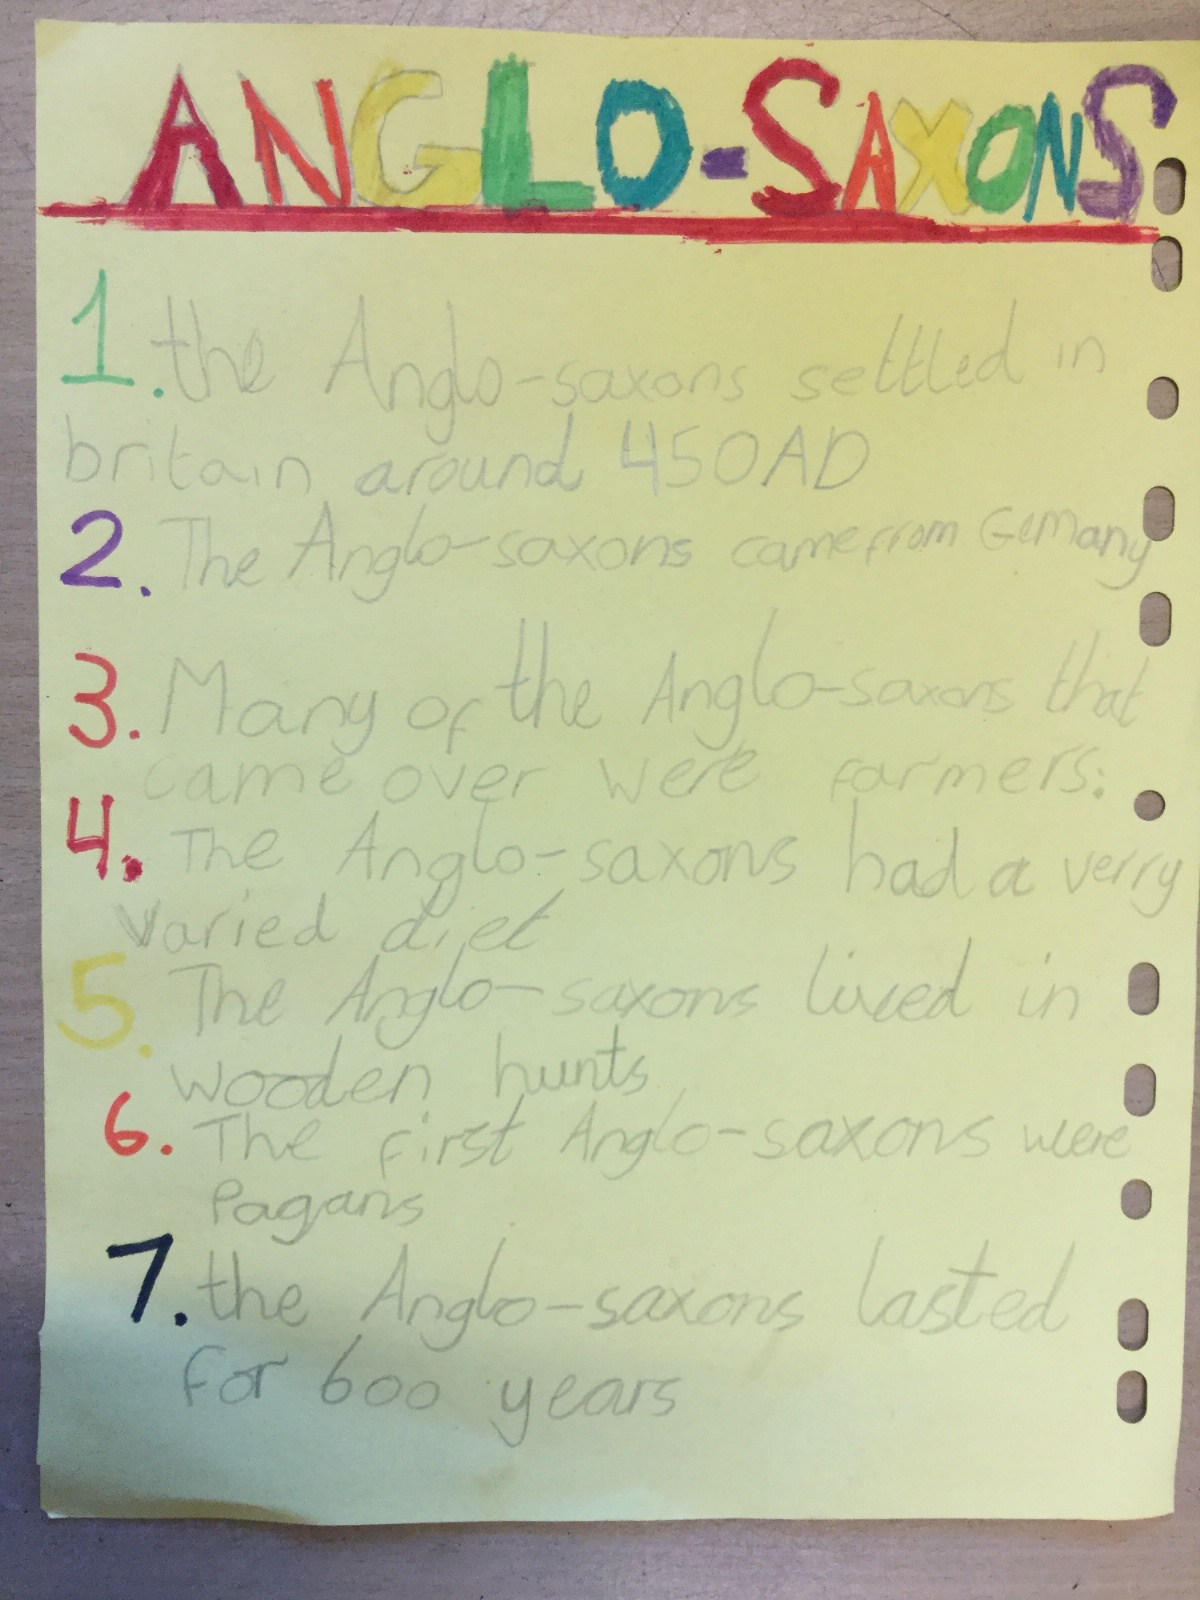 ANGLO-SAXONS
1. the Anglo-saxons settled in
britain around 450AD
2. The Anglo-saxons came from Germany
3. Many of the Anglo-saxons that
came over were farmers:
4. The Anglo-saxons had a verry
varied diet
5. The Anglo-saxons lived in
wooden hunts
6. The first Anglo-saxons were
Pagans
7. the Anglo-saxons lasted
for 600 years